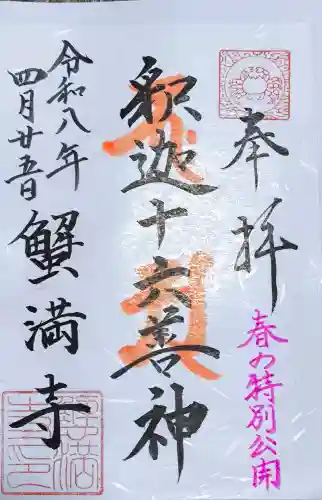 奉拝
春の特別公開
釈迦十六善神
令和八年
四月廿五日
蟹満寺